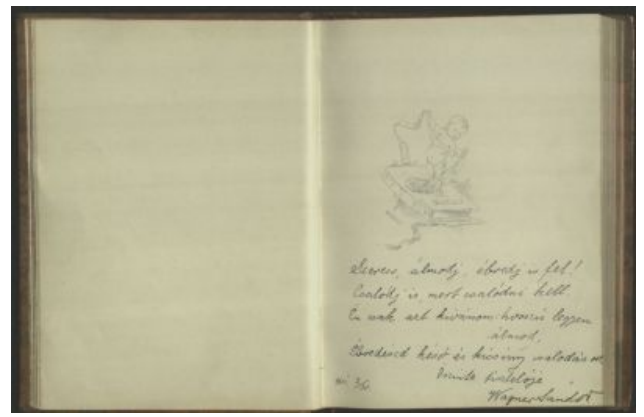 Szeress, álmodj, ébredj is fel!
Csalódj is, mert csalódni kell.
Én csak azt kívánom: hosszú legyen
álmod,
Ébredésed késő és kicsiny csalódásod
őszinte tisztelője
Wagner Sándor